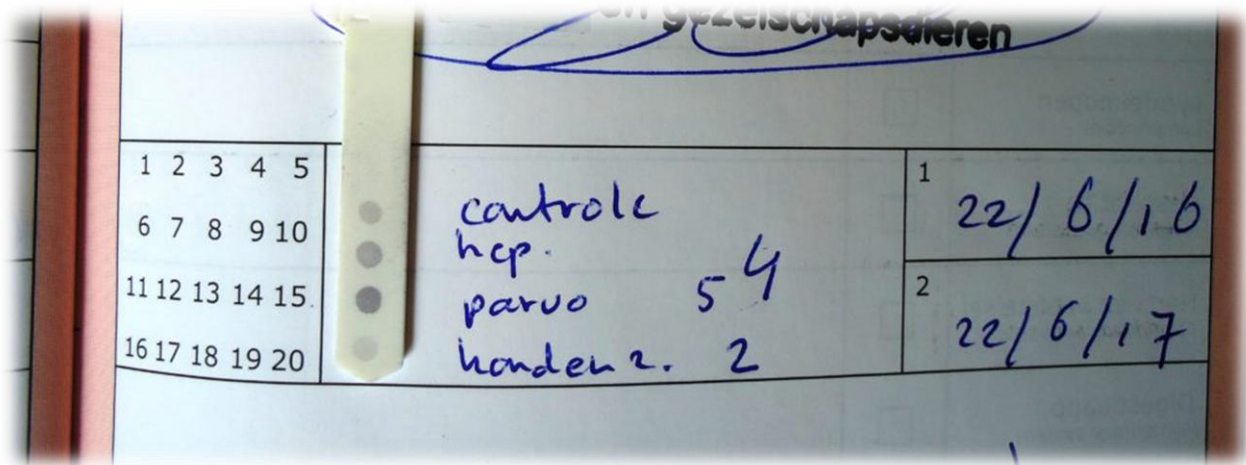 en gezelschapsdieren
1 2 3 4 5
6 7 8 9 10
11 12 13 14 15
16 17 18 19 20
controle
hep. 4
parvo 5
honden z. 2
1 22/6/16
2 22/6/17